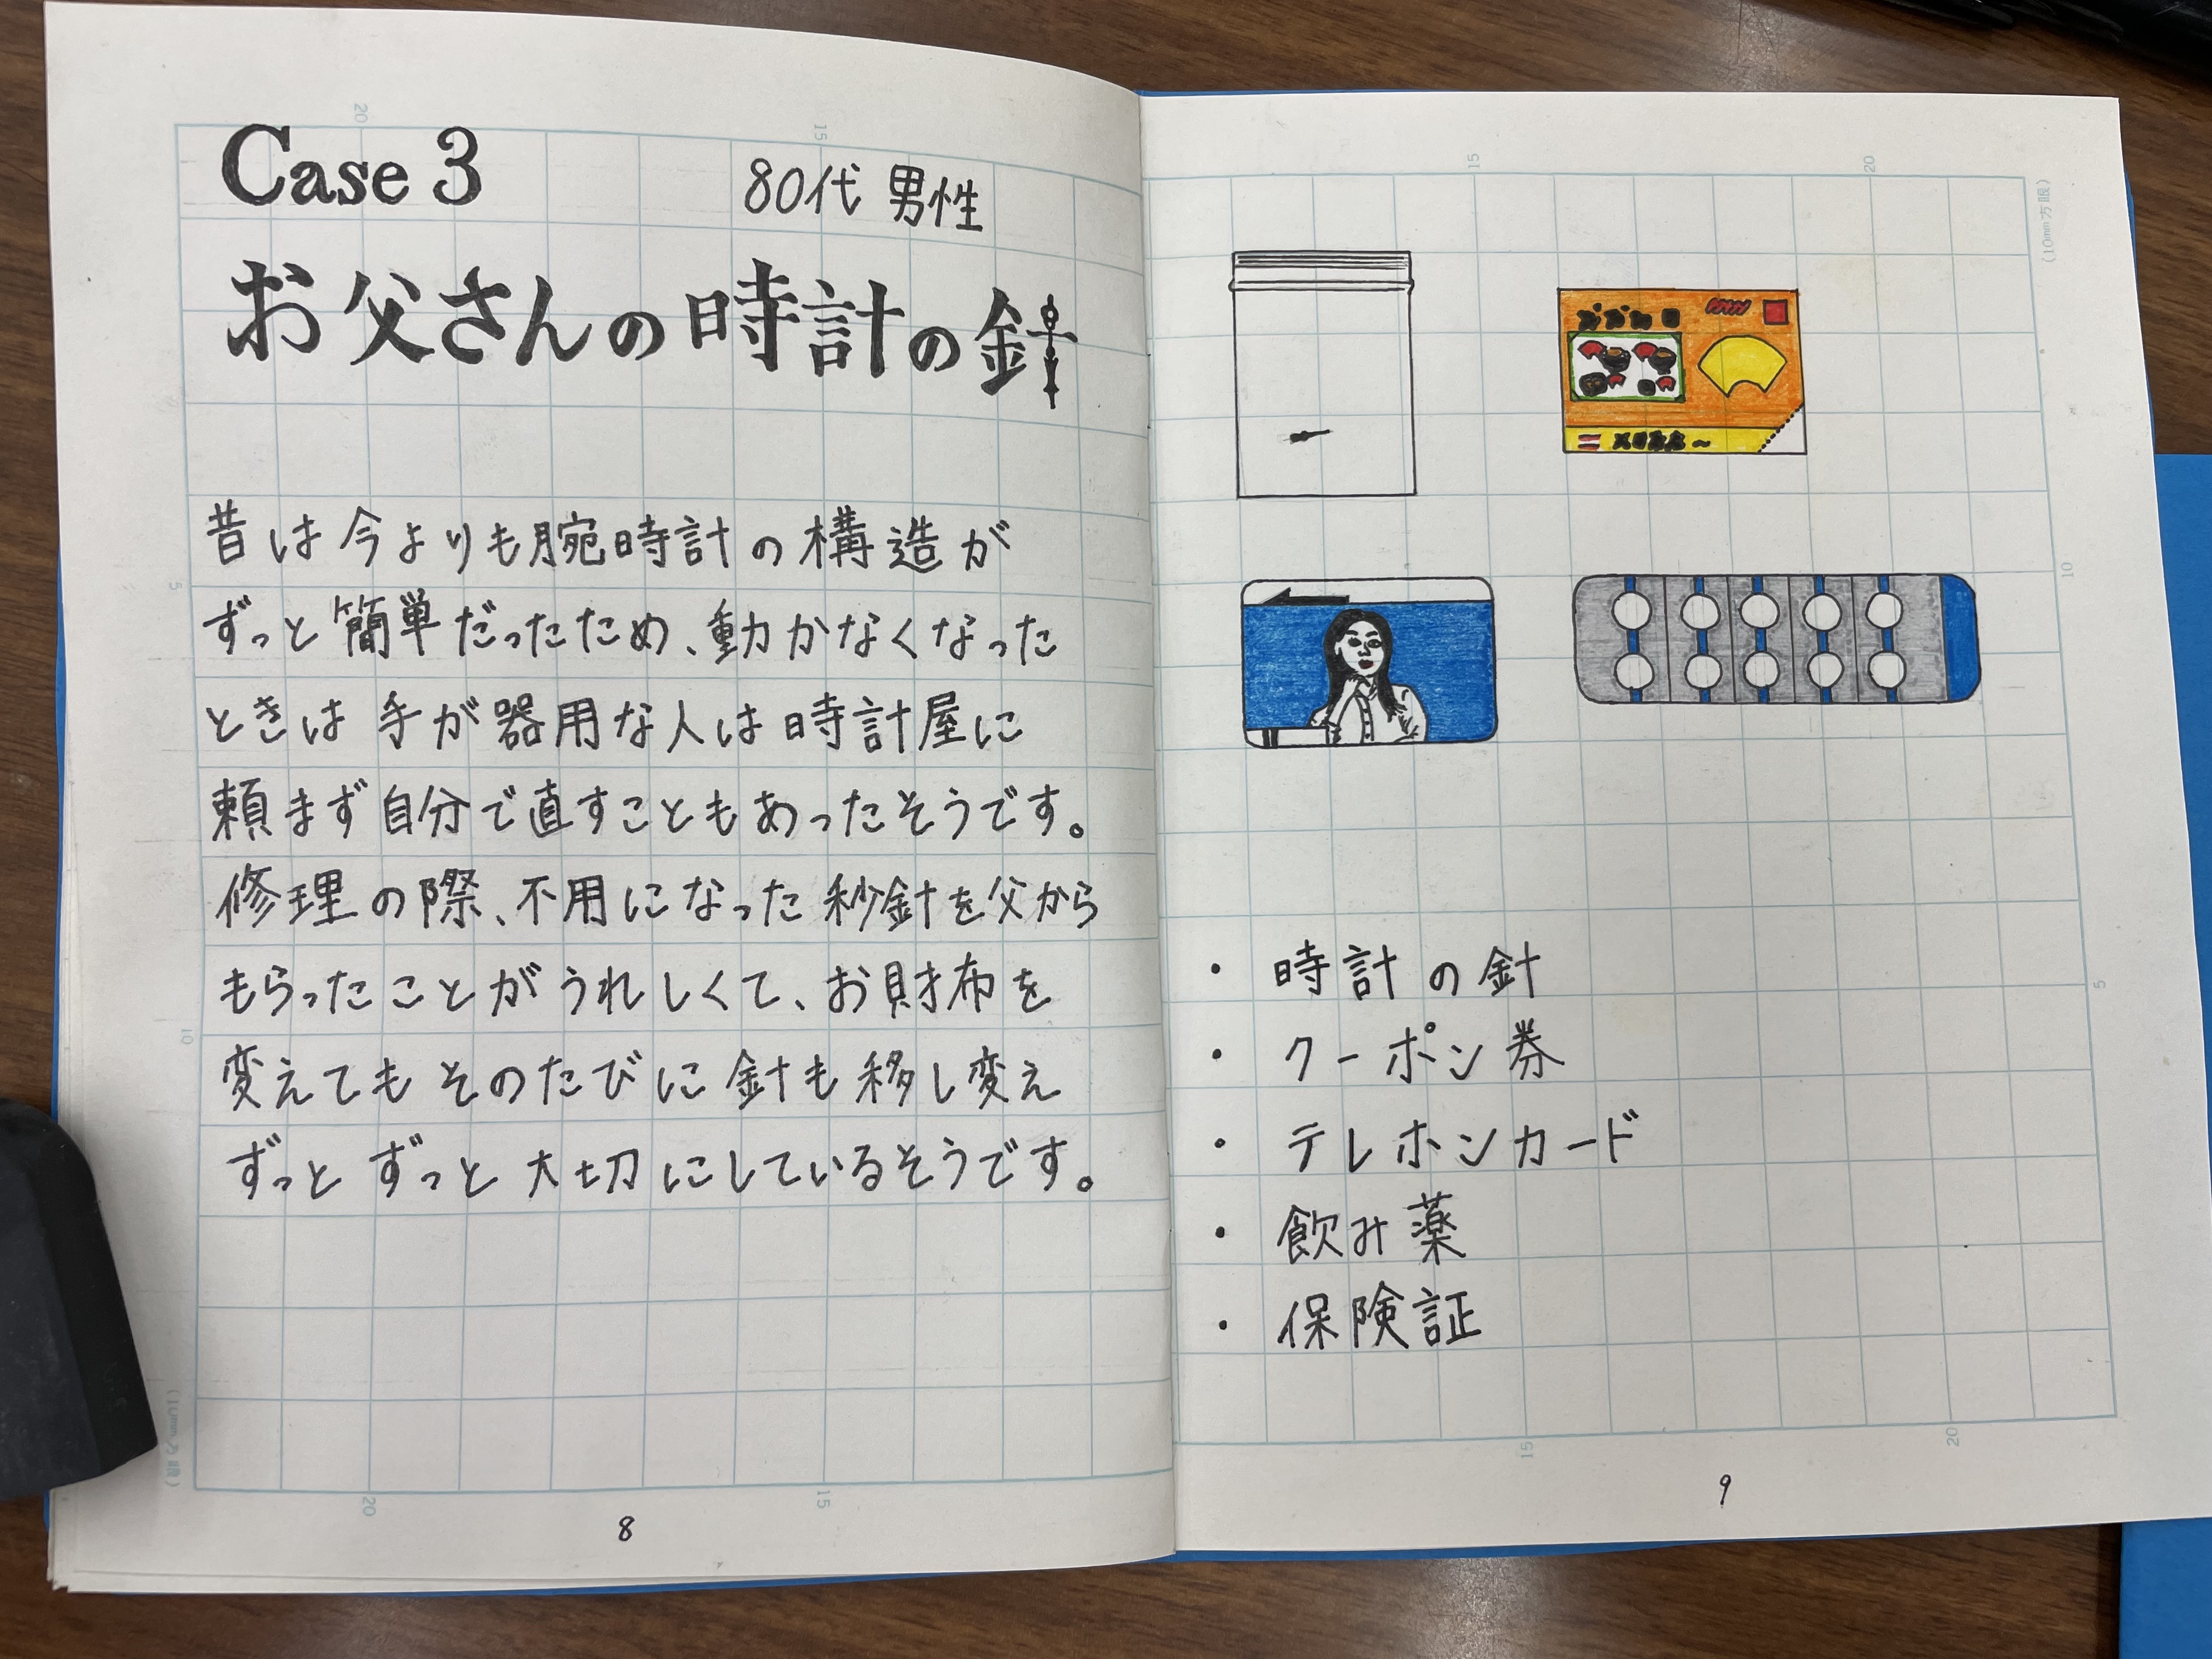 Case 3
80代 男性
お父さんの時計の針
昔は今よりも腕時計の構造が
ずっと簡単だったため、動かなくなった
ときは手が器用な人は時計屋に
頼まず自分で直すこともあったそうです。
修理の際、不用になった秒針を父から
もらったことがうれしくて、お財布を
変えてもそのたびに針も移し変え
ずっとずっと大切にしているそうです。
8
・時計の針
・クーポン券
・テレホンカード
・飲み薬
・保険証
9
20
15
5
10
20
15
15
20
(10mm方眼)
10
5
15
20
(10mm方眼)